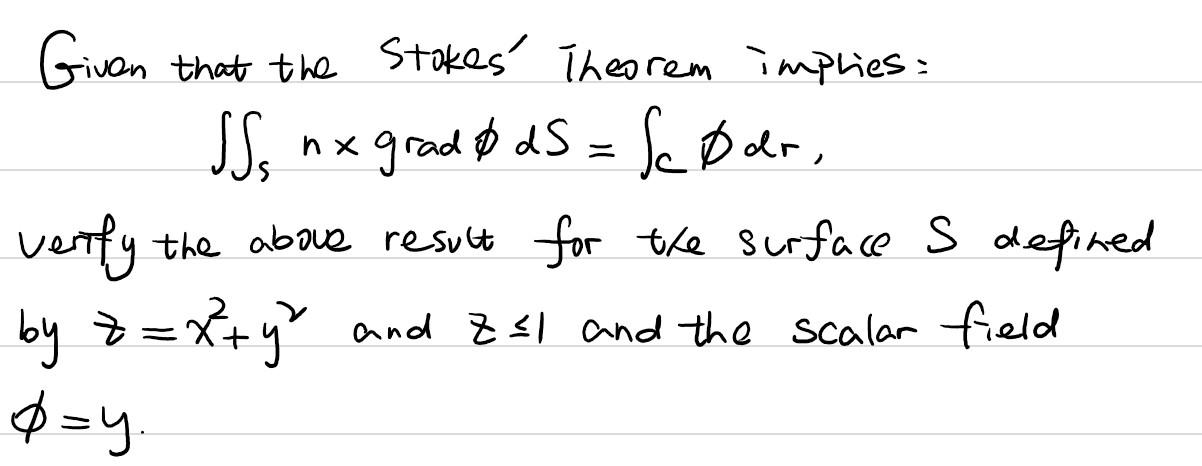 Given that the Stokes' Theorem implies:
∬ₛ n × grad ϕ dS = ∫_C ϕ dr,
verify the above result for the surface S defined
by z = x² + y² and z ≤ 1 and the scalar field
ϕ = y.